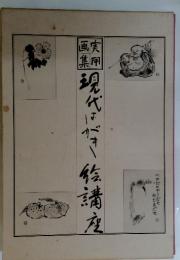 実用
画集
現代はがき絵講座